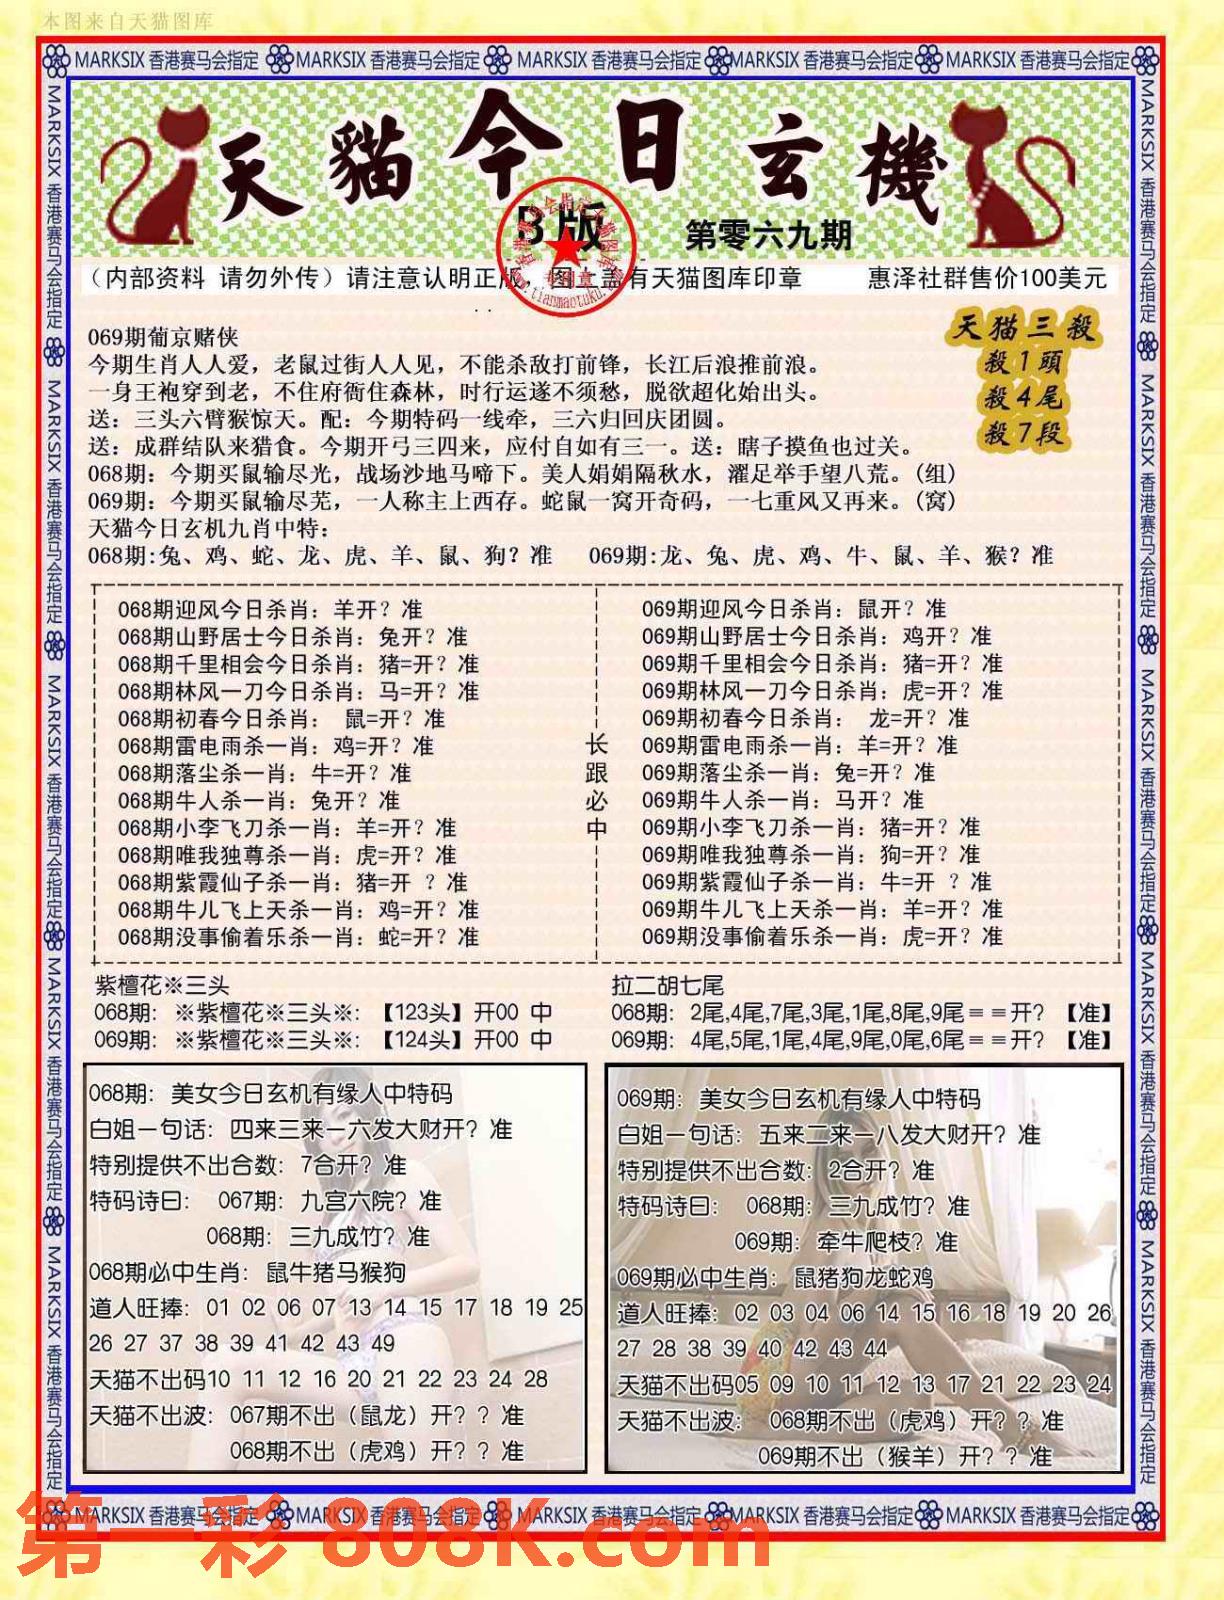 本图来自天猫图库
MARKSIX 香港赛马会指定 MARKSIX 香港赛马会指定 MARKSIX 香港赛马会指定 MARKSIX 香港赛马会指定 MARKSIX 香港赛马会指定
天貓今日玄機
B版
第零六九期
(内部资料 请勿外传) 请注意认明正版 有天猫图库印章 惠泽社群售价100美元
天猫三殺
殺1頭
殺4尾
殺7段
069期葡京赌侠
今期生肖人人爱，老鼠过街人人见，不能杀敌打前锋，长江后浪推前浪。
一身王袍穿到老，不住府衙住森林，时行运遂不须愁，脱欲超化始出头。
送：三头六臂猴惊天。配：今期特码一线牵，三六归回庆团圆。
送：成群结队来猎食。今期开弓三四来，应付自如有三一。送：瞎子摸鱼也过关。
068期：今期买鼠输尽光，战场沙地马啼下。美人娟娟隔秋水，濯足举手望八荒。(组)
069期：今期买鼠输尽芜，一人称主上西存。蛇鼠一窝开奇码，一七重风又再来。(窝)
天猫今日玄机九肖中特：
068期:兔、鸡、蛇、龙、虎、羊、鼠、狗？准 069期:龙、兔、虎、鸡、牛、鼠、羊、猴？准
068期迎风今日杀肖：羊开？准
068期山野居士今日杀肖：兔开？准
068期千里相会今日杀肖：猪=开？准
068期林风一刀今日杀肖：马=开？准
068期初春今日杀肖： 鼠=开？准
068期雷电雨杀一肖：鸡=开？准
068期落尘杀一肖：牛=开？准
068期牛人杀一肖：兔开？准
068期小李飞刀杀一肖：羊=开？准
068期唯我独尊杀一肖：虎=开？准
068期紫霞仙子杀一肖：猪=开 ？准
068期牛儿飞上天杀一肖：鸡=开？准
068期没事偷着乐杀一肖：蛇=开？准
长跟必中
069期迎风今日杀肖：鼠开？准
069期山野居士今日杀肖：鸡开？准
069期千里相会今日杀肖：猪=开？准
069期林风一刀今日杀肖：虎=开？准
069期初春今日杀肖： 龙=开？准
069期雷电雨杀一肖：羊=开？准
069期落尘杀一肖：兔=开？准
069期牛人杀一肖：马开？准
069期小李飞刀杀一肖：猪=开？准
069期唯我独尊杀一肖：狗=开？准
069期紫霞仙子杀一肖：牛=开 ？准
069期牛儿飞上天杀一肖：羊=开？准
069期没事偷着乐杀一肖：虎=开？准
紫檀花※三头
068期：※紫檀花※三头※：【123头】开00 中
069期：※紫檀花※三头※：【124头】开00 中
拉二胡七尾
068期：2尾,4尾,7尾,3尾,1尾,8尾,9尾＝＝开？【准】
069期：4尾,5尾,1尾,4尾,9尾,0尾,6尾＝＝开？【准】
068期：美女今日玄机有缘人中特码
白姐一句话：四来三来一六发大财开？准
特别提供不出合数：7合开？准
特码诗曰： 067期：九宫六院？准
068期：三九成竹？准
068期必中生肖：鼠牛猪马猴狗
道人旺捧：01 02 06 07 13 14 15 17 18 19 25
26 27 37 38 39 41 42 43 49
天猫不出码10 11 12 16 20 21 22 23 24 28
天猫不出波：067期不出（鼠龙）开？？准
068期不出（虎鸡）开？？准
069期：美女今日玄机有缘人中特码
白姐一句话：五来二来一八发大财开？准
特别提供不出合数：2合开？准
特码诗曰： 068期：三九成竹？准
069期：牵牛爬枝？准
069期必中生肖：鼠猪狗龙蛇鸡
道人旺捧：02 03 04 06 14 15 16 18 19 20 26
27 28 38 39 40 42 43 44
天猫不出码05 09 10 11 12 13 17 21 22 23 24
天猫不出波： 068期不出（虎鸡）开？？准
069期不出（猴羊）开？？准
MARKSIX 香港赛马会指定 MARKSIX 香港赛马会指定 MARKSIX 香港赛马会指定 MARKSIX 香港赛马会指定 MARKSIX 香港赛马会指定
第一彩 808K.com